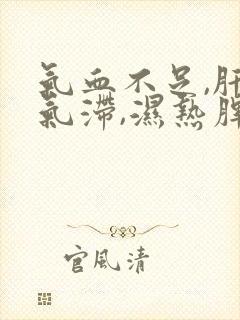 氣血不足,肝
氣滯,濕熱脾
官風清